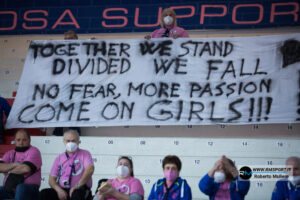 OSA SUPPORT
TOGETHER WE STAND
DIVIDED WE FALL
NO FEAR, MORE PASSION
COME ON GIRLS!!!
WWW.RMSPORT.IT
© WWW.RMSPORT.IT
Roberto Muliere